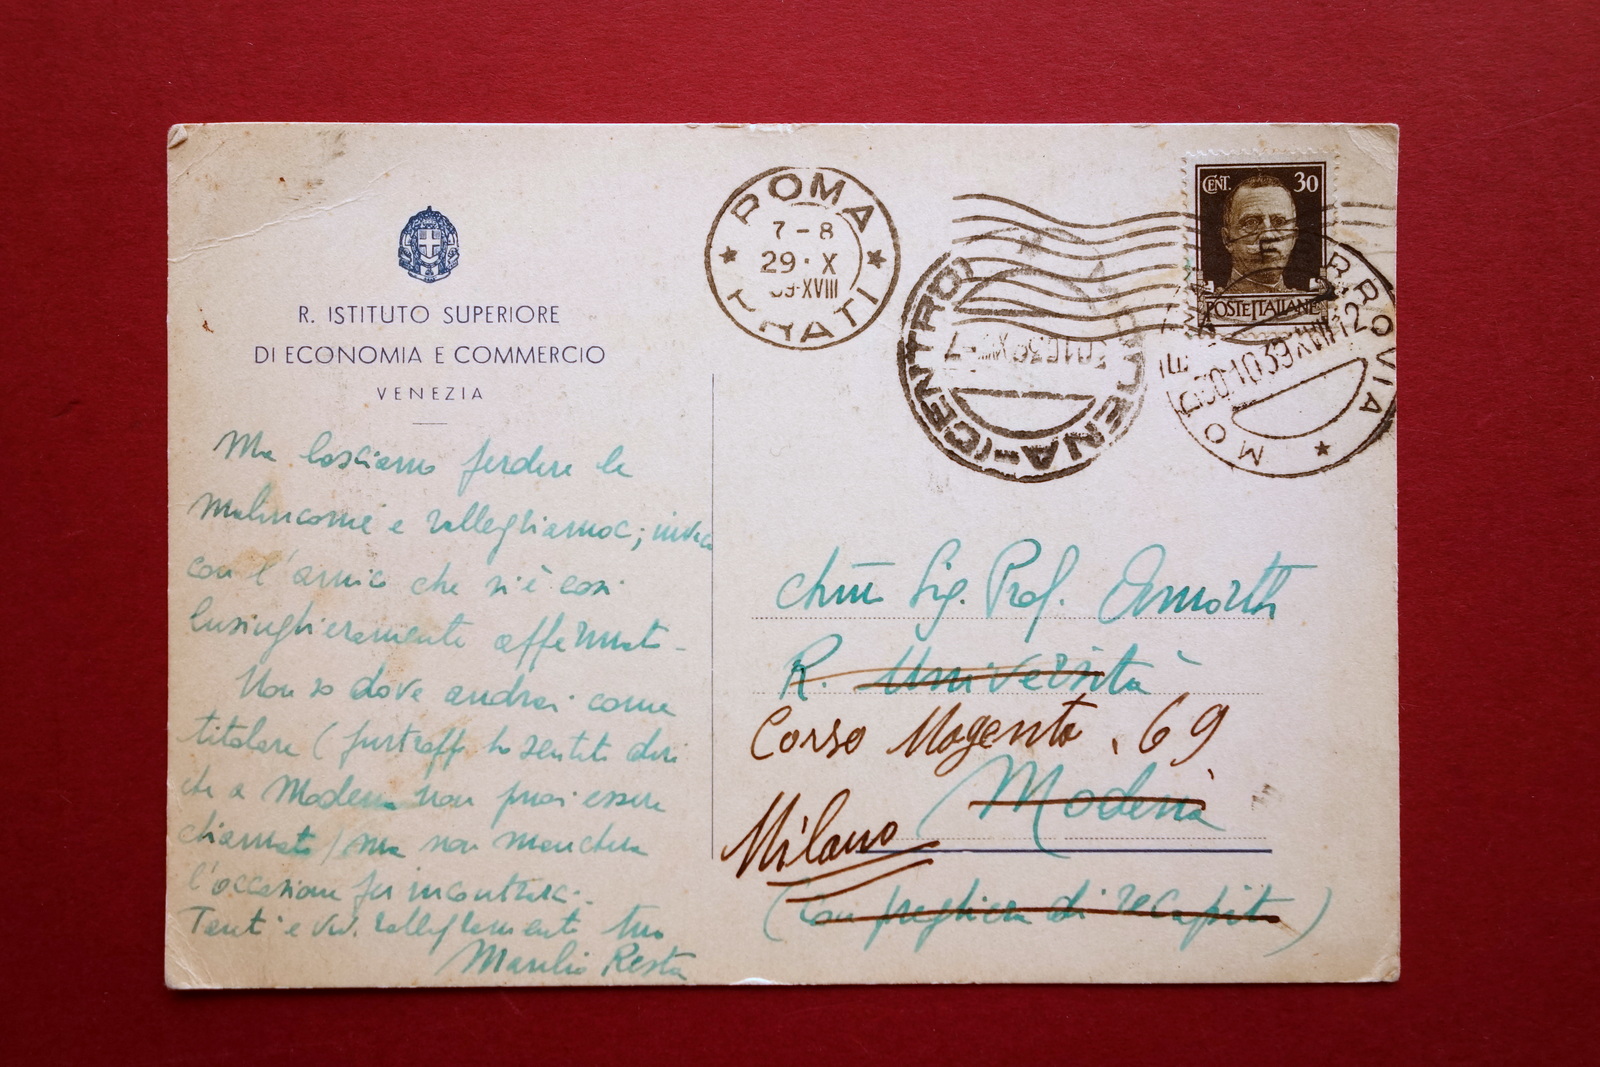 R. ISTITUTO SUPERIORE
DI ECONOMIA E COMMERCIO
VENEZIA
Ma lasciamo perdere le
malinconie e rallegriamoci; invece
con l'amico che si è così
lusinghieramente affermato -
Non so dove andrai come
titolare (purtroppo ho sentito dire
che a Modena non puoi essere
chiamato) ma non mancherà
l'occasione per incontrarci.
Tanti e viv. rallegramenti tuo
Manlio Resta
ROMA
7-8
29·X
39·XVIII
PRATI
CENT. 30
POSTE ITALIANE
(CENTRO)
FERROVIA
30·10 39 XVIII 12
MO
Chmo Sig. Prof. Amorth
R. Università
Corso Magenta, 69
Modena
Milano
(Con preghiera di recapito)